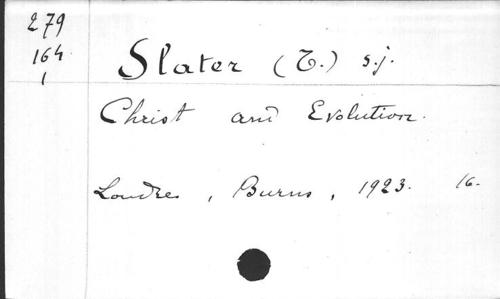 279
164
1
Slater (T.) s.j.
Christ and Evolution.
Londres, Burns, 1923. 16-